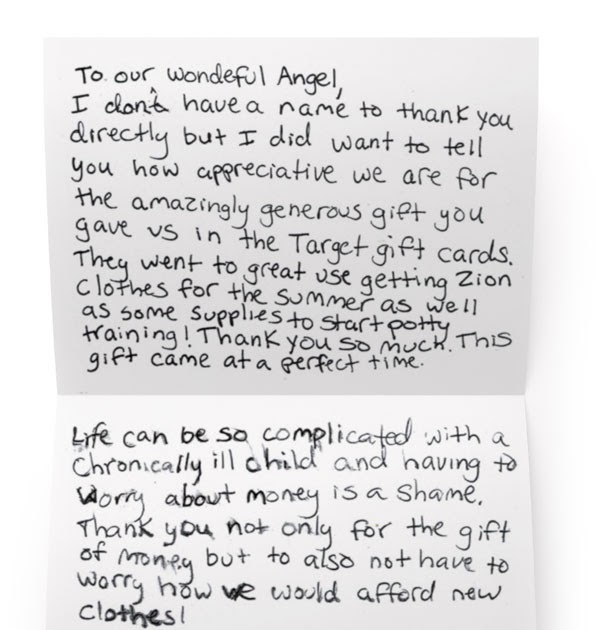 To our wondeful Angel,
I don't have a name to thank you
directly but I did want to tell
you how appreciative we are for
the amazingly generous gift you
gave us in the Target gift cards.
They went to great use getting Zion
clothes for the summer as well
as some supplies to start potty
training! Thank you so much. This
gift came at a perfect time.
Life can be so complicated with a
Chronically ill child and having to
worry about money is a shame.
Thank you not only for the gift
of money but to also not have to
worry how we would afford new
clothes!